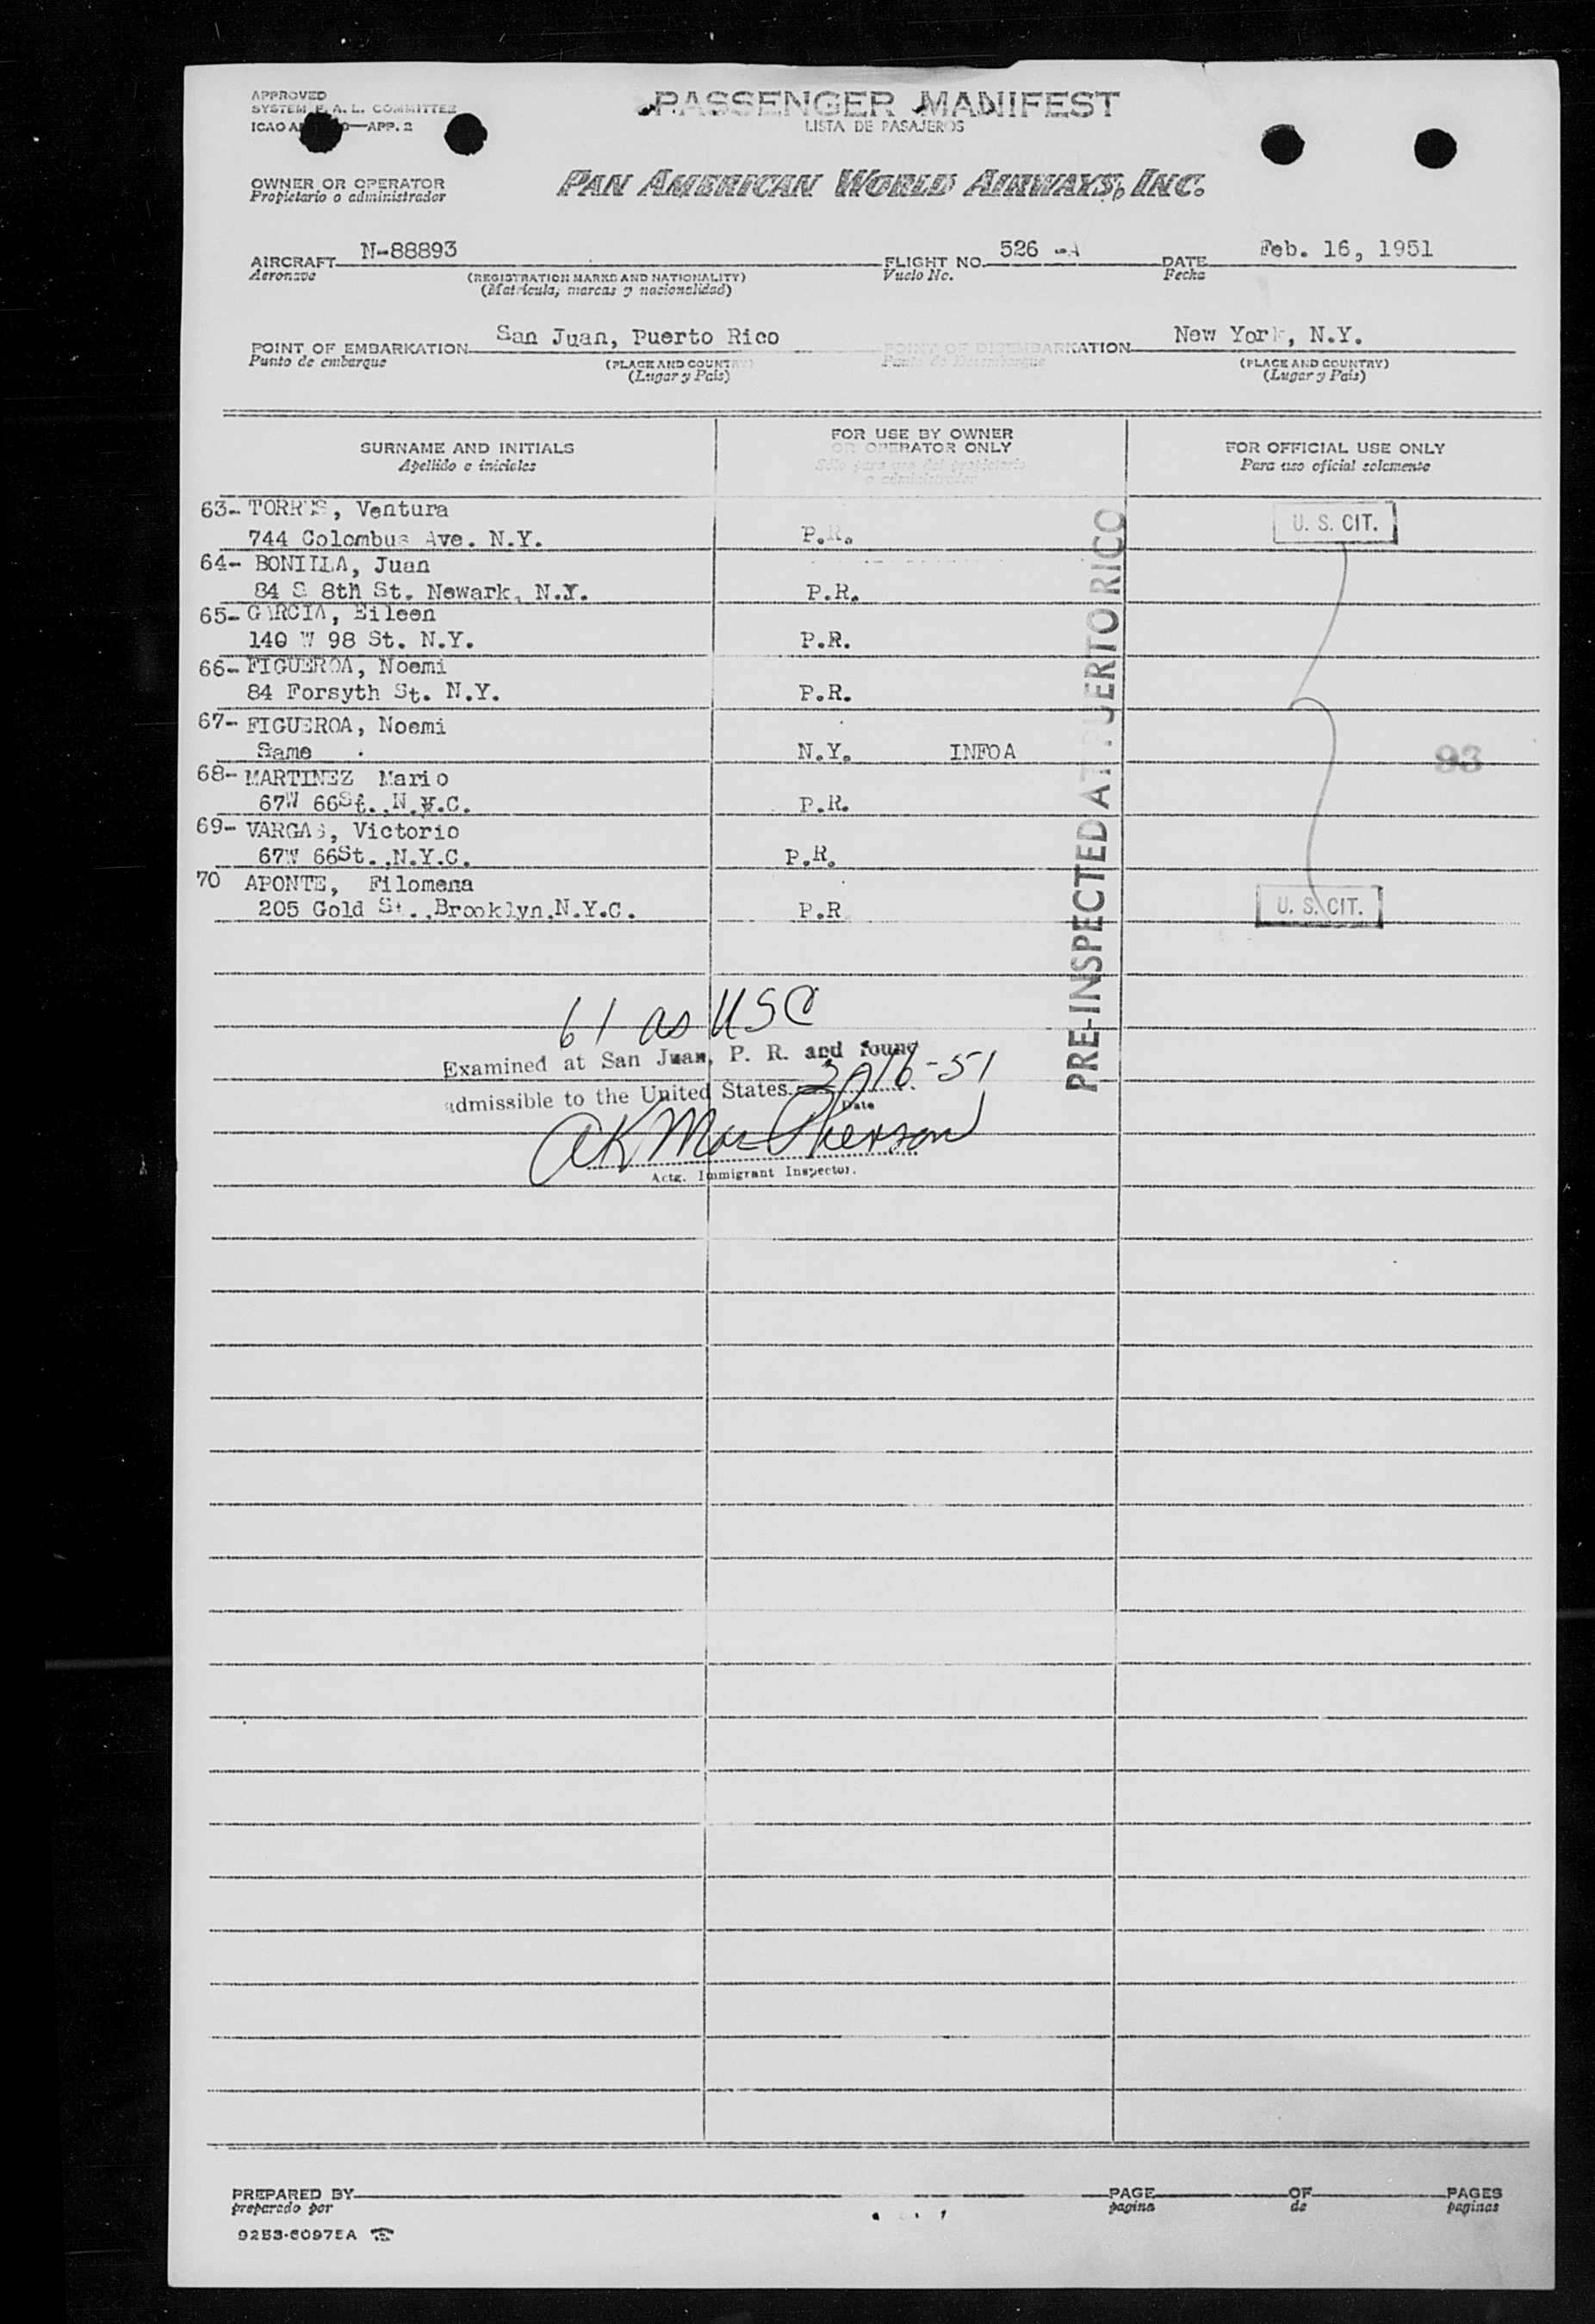 APPROVED
SYSTEM F. A. L. COMMITTEE
ICAO —APP. 2
PASSENGER MANIFEST
LISTA DE PASAJEROS
OWNER OR OPERATOR
Propietario o administrador
PAN AMERICAN WORLD AIRWAYS, INC.
AIRCRAFT N-88893 FLIGHT NO. 526 -A DATE Feb. 16, 1951
Aeronave (REGISTRATION MARKS AND NATIONALITY) Vuelo No. Fecha
(Matricula, marcas y nacionalidad)
POINT OF EMBARKATION San Juan, Puerto Rico POINT OF DISEMBARKATION New York, N.Y.
Punto de embarque (PLACE AND COUNTRY) Punto de Desembarque (PLACE AND COUNTRY)
(Lugar y Pais) (Lugar y Pais)
SURNAME AND INITIALS FOR USE BY OWNER OR OPERATOR ONLY FOR OFFICIAL USE ONLY
Apellido e iniciales Sólo para uso del propietario o administrador Para uso oficial solamente
63- TORRES, Ventura U. S. CIT.
744 Colombus Ave. N.Y. P.R.
64- BONILLA, Juan
84 S 8th St. Newark, N.Y. P.R.
65- GARCIA, Eileen
140 W 98 St. N.Y. P.R.
66- FIGUEROA, Noemi
84 Forsyth St. N.Y. P.R.
67- FIGUEROA, Noemi
Same N.Y. INFOA 93
68- MARTINEZ Mario
67W 66St., N.Y.C. P.R.
69- VARGAS, Victorio
67W 66St., N.Y.C. P.R.
70 APONTE, Filomena
205 Gold St., Brooklyn, N.Y.C. P.R U. S. CIT.
PRE-INSPECTED AT PUERTO RICO
61 as USC
Examined at San Juan, P. R. and found
admissible to the United States 2-16-51
Date
AK MacPherson
Actg. Immigrant Inspector.
PREPARED BY PAGE OF PAGES
preparado por pagina de paginas
9253-60975A